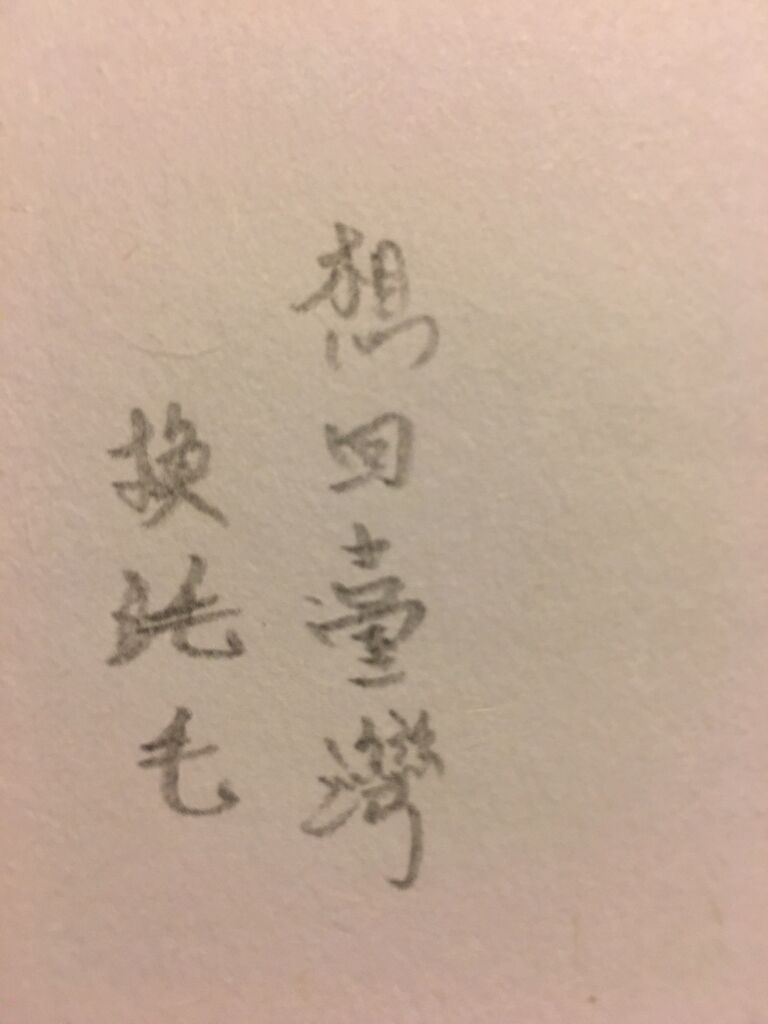 想回臺灣
換純毛